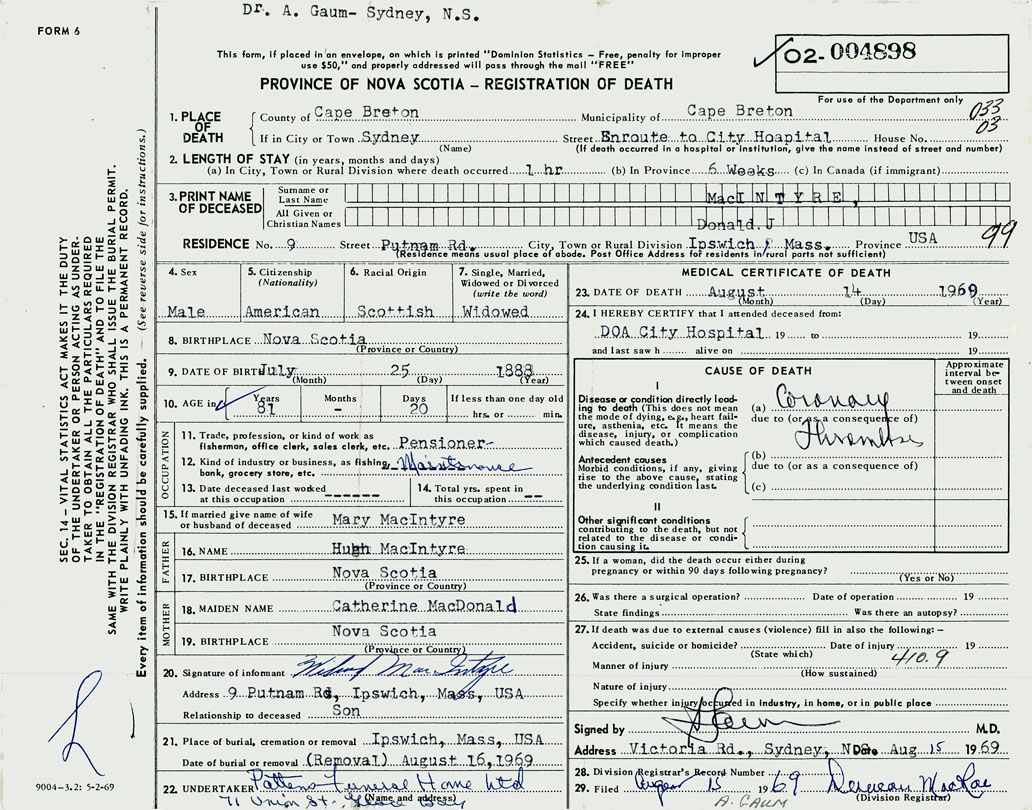 Dr. A. Gaum- Sydney, N.S.
FORM 6
This form, if placed in an envelope, on which is printed "Dominion Statistics – Free, penalty for improper
use $50," and properly addressed will pass through the mail "FREE"
O2- 004898
PROVINCE OF NOVA SCOTIA – REGISTRATION OF DEATH
For use of the Department only
033
03
1. PLACE OF DEATH
County of Cape Breton Municipality of Cape Breton
If in City or Town Sydney Street Enroute to City Hoapital House No.
(Name) (If death occurred in a hospital or institution, give the name instead of street and number)
2. LENGTH OF STAY (in years, months and days)
(a) In City, Town or Rural Division where death occurred 1 hr (b) In Province 6 Weeks (c) In Canada (if immigrant)
3. PRINT NAME OF DECEASED
Surname or Last Name MacINTYRE,
All Given or Christian Names Donald J
RESIDENCE No. 9 Street Putnam Rd. City, Town or Rural Division Ipswich, Mass. Province USA 99
(Residence means usual place of abode. Post Office Address for residents in rural parts not sufficient)
4. Sex
Male
5. Citizenship
(Nationality)
American
6. Racial Origin
Scottish
7. Single, Married,
Widowed or Divorced
(write the word)
Widowed
8. BIRTHPLACE Nova Scotia
(Province or Country)
9. DATE OF BIRTH July 25 1888
(Month) (Day) (Year)
10. AGE in Years 81 Months - Days 20 If less than one day old
hrs. or min.
OCCUPATION
11. Trade, profession, or kind of work as
fisherman, office clerk, sales clerk, etc. Pensioner-
12. Kind of industry or business, as fishing,
bank, grocery store, etc. Maintenance
13. Date deceased last worked
at this occupation ------
14. Total yrs. spent in
this occupation --
15. If married give name of wife
or husband of deceased Mary MacIntyre
FATHER
16. NAME Hugh MacIntyre
17. BIRTHPLACE Nova Scotia
(Province or Country)
MOTHER
18. MAIDEN NAME Catherine MacDonald
19. BIRTHPLACE Nova Scotia
(Province or Country)
20. Signature of informant MacIntyre
Address 9 Putnam Rd, Ipswich, Mass, USA
Relationship to deceased Son
21. Place of burial, cremation or removal Ipswich, Mass, USA
Date of burial or removal (Removal) August 16,1969
22. UNDERTAKER Pattens Funeral Home Ltd
(Name and address)
71 Union St.
MEDICAL CERTIFICATE OF DEATH
23. DATE OF DEATH August 14 1969
(Month) (Day) (Year)
24. I HEREBY CERTIFY that I attended deceased from:
DOA City Hospital 19 to 19
and last saw h alive on 19
CAUSE OF DEATH
Approximate
interval be-
tween onset
and death
I
Disease or condition directly lead-
ing to death (This does not mean
the mode of dying, e.g., heart fail-
ure, asthenia, etc. It means the
disease, injury, or complication
which caused death.)
(a) Coronary
due to (or as a consequence of)
Thrombosis
Antecedent causes
Morbid conditions, if any, giving
rise to the above cause, stating
the underlying condition last.
(b)
due to (or as a consequence of)
(c)
II
Other significant conditions
contributing to the death, but not
related to the disease or condi-
tion causing it.
25. If a woman, did the death occur either during
pregnancy or within 90 days following pregnancy?
(Yes or No)
26. Was there a surgical operation? Date of operation 19
State findings Was there an autopsy?
27. If death was due to external causes (violence) fill in also the following: –
Accident, suicide or homicide? Date of injury 19
(State which) 410.9
Manner of injury
(How sustained)
Nature of injury
Specify whether injury occurred in industry, in home, or in public place
Signed by M.D.
Address Victoria Rd., Sydney, NS Date Aug 15 1969
28. Division Registrar's Record Number
29. Filed August 15 1969
(Division Registrar)
A. GAUM
SEC. 14 – VITAL STATISTICS ACT MAKES IT THE DUTY
OF THE UNDERTAKER OR PERSON ACTING AS UNDER-
TAKER TO OBTAIN ALL THE PARTICULARS REQUIRED
IN THE "REGISTRATION OF DEATH" AND TO FILE THE
SAME WITH THE DIVISION REGISTRAR WHO SHALL ISSUE THE BURIAL PERMIT.
WRITE PLAINLY WITH UNFADING INK. THIS IS A PERMANENT RECORD.
Every item of information should be carefully supplied. (See reverse side for instructions.)
9004-3.2: 5-2-69